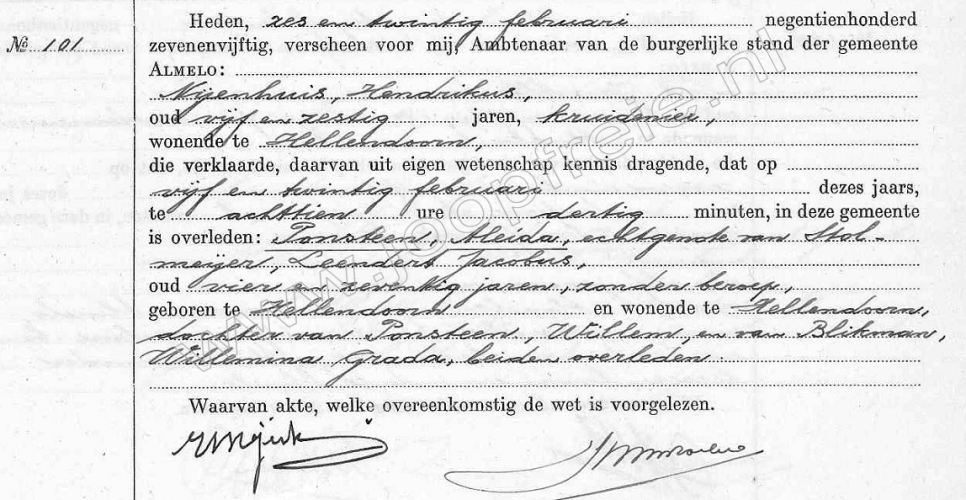 Heden, zes en twintig februari negentienhonderd
№ 101
zevenenvijftig, verscheen voor mij, Ambtenaar van de burgerlijke stand der gemeente
ALMELO:
Nijenhuis, Hendrikus,
oud vijf en zestig jaren, kruidenier,
wonende te Hellendoorn,
die verklaarde, daarvan uit eigen wetenschap kennis dragende, dat op
vijf en twintig februari dezes jaars,
te achttien ure dertig minuten, in deze gemeente
is overleden: Ponsteen, Aleida, echtgenote van Stol-
meijer, Leendert Jacobus,
oud vier en zeventig jaren, zonder beroep,
geboren te Hellendoorn en wonende te Hellendoorn,
dochter van Ponsteen, Willem, en van Blikman,
Willemina Grada, beiden overleden
Waarvan akte, welke overeenkomstig de wet is voorgelezen.
www.joopfreie.nl